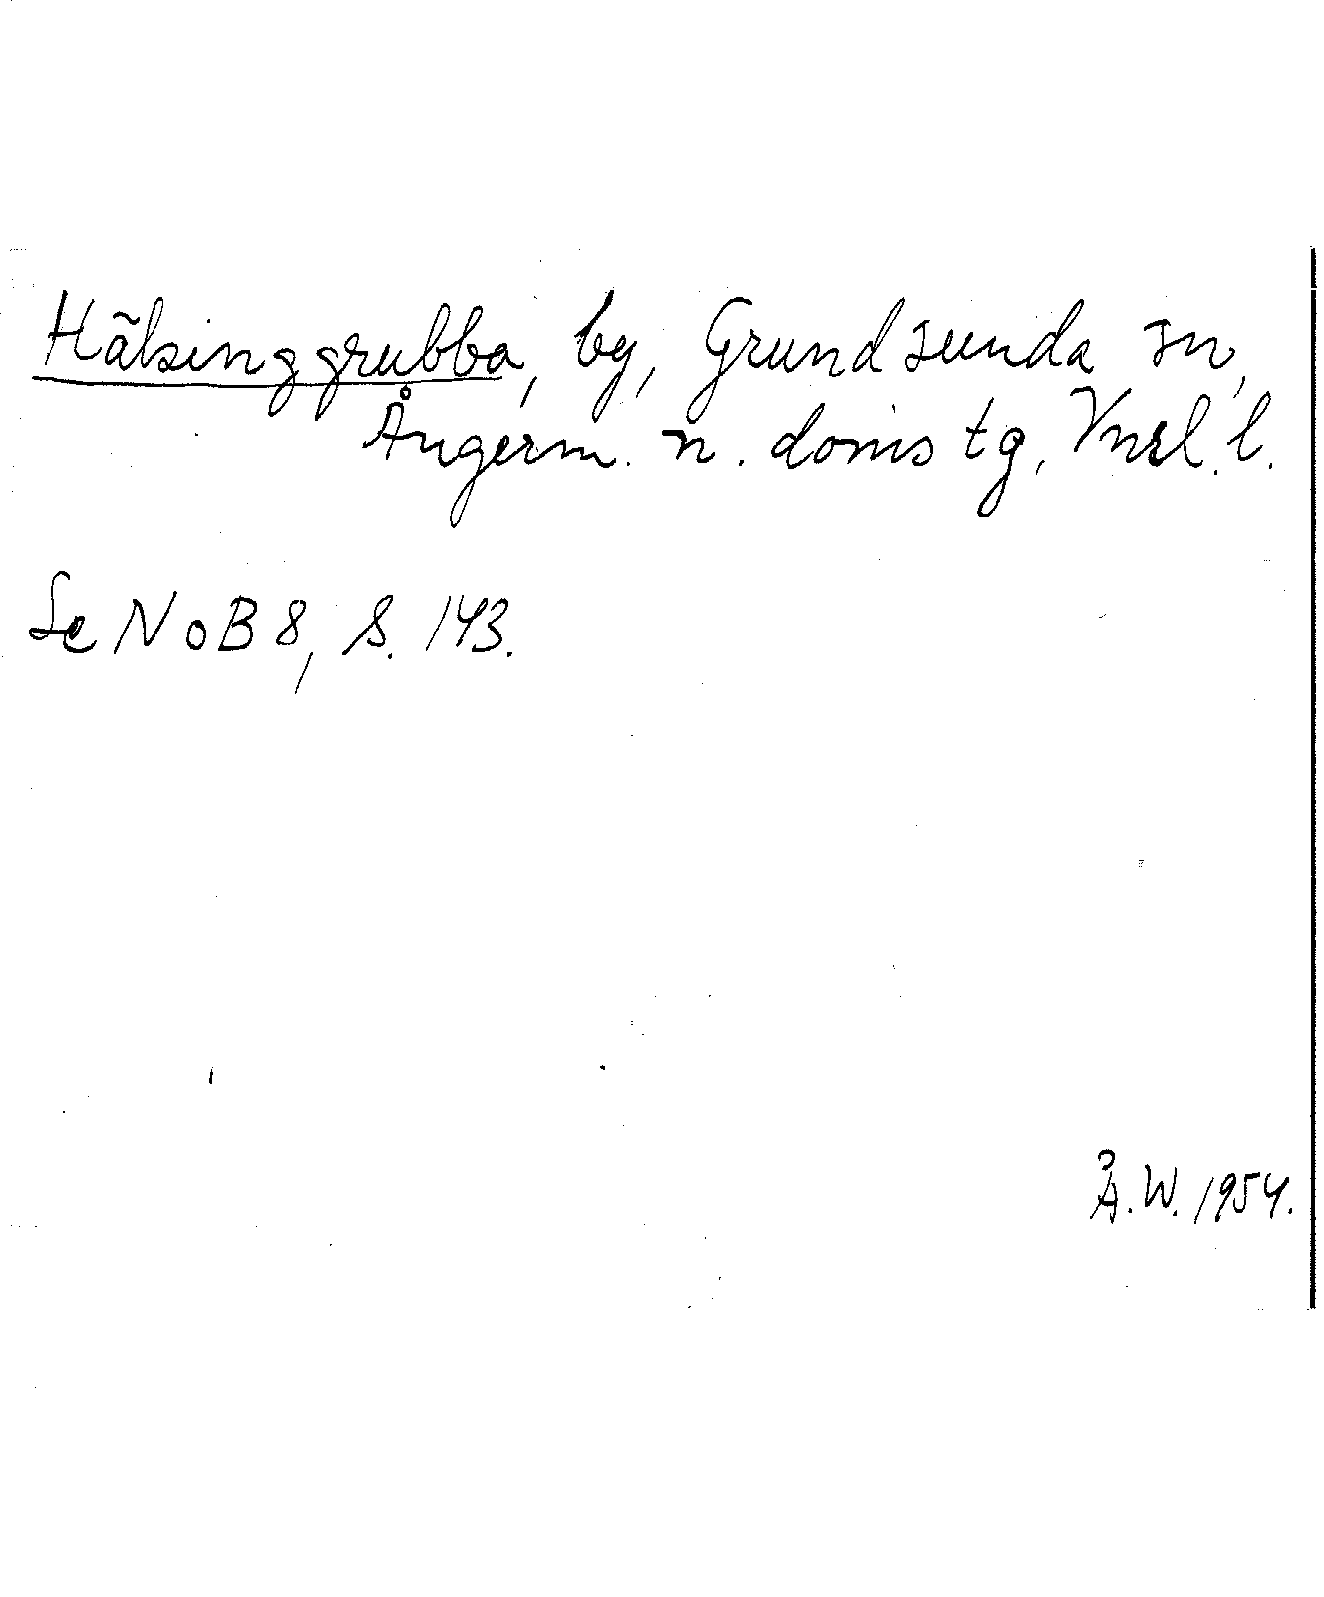 Hälsinggrubba, by, Grundsunda sn,
Ångerm. n. doms tg, Vnrl. l.
Se NoB 8, S. 143.
Å.W. 1954.